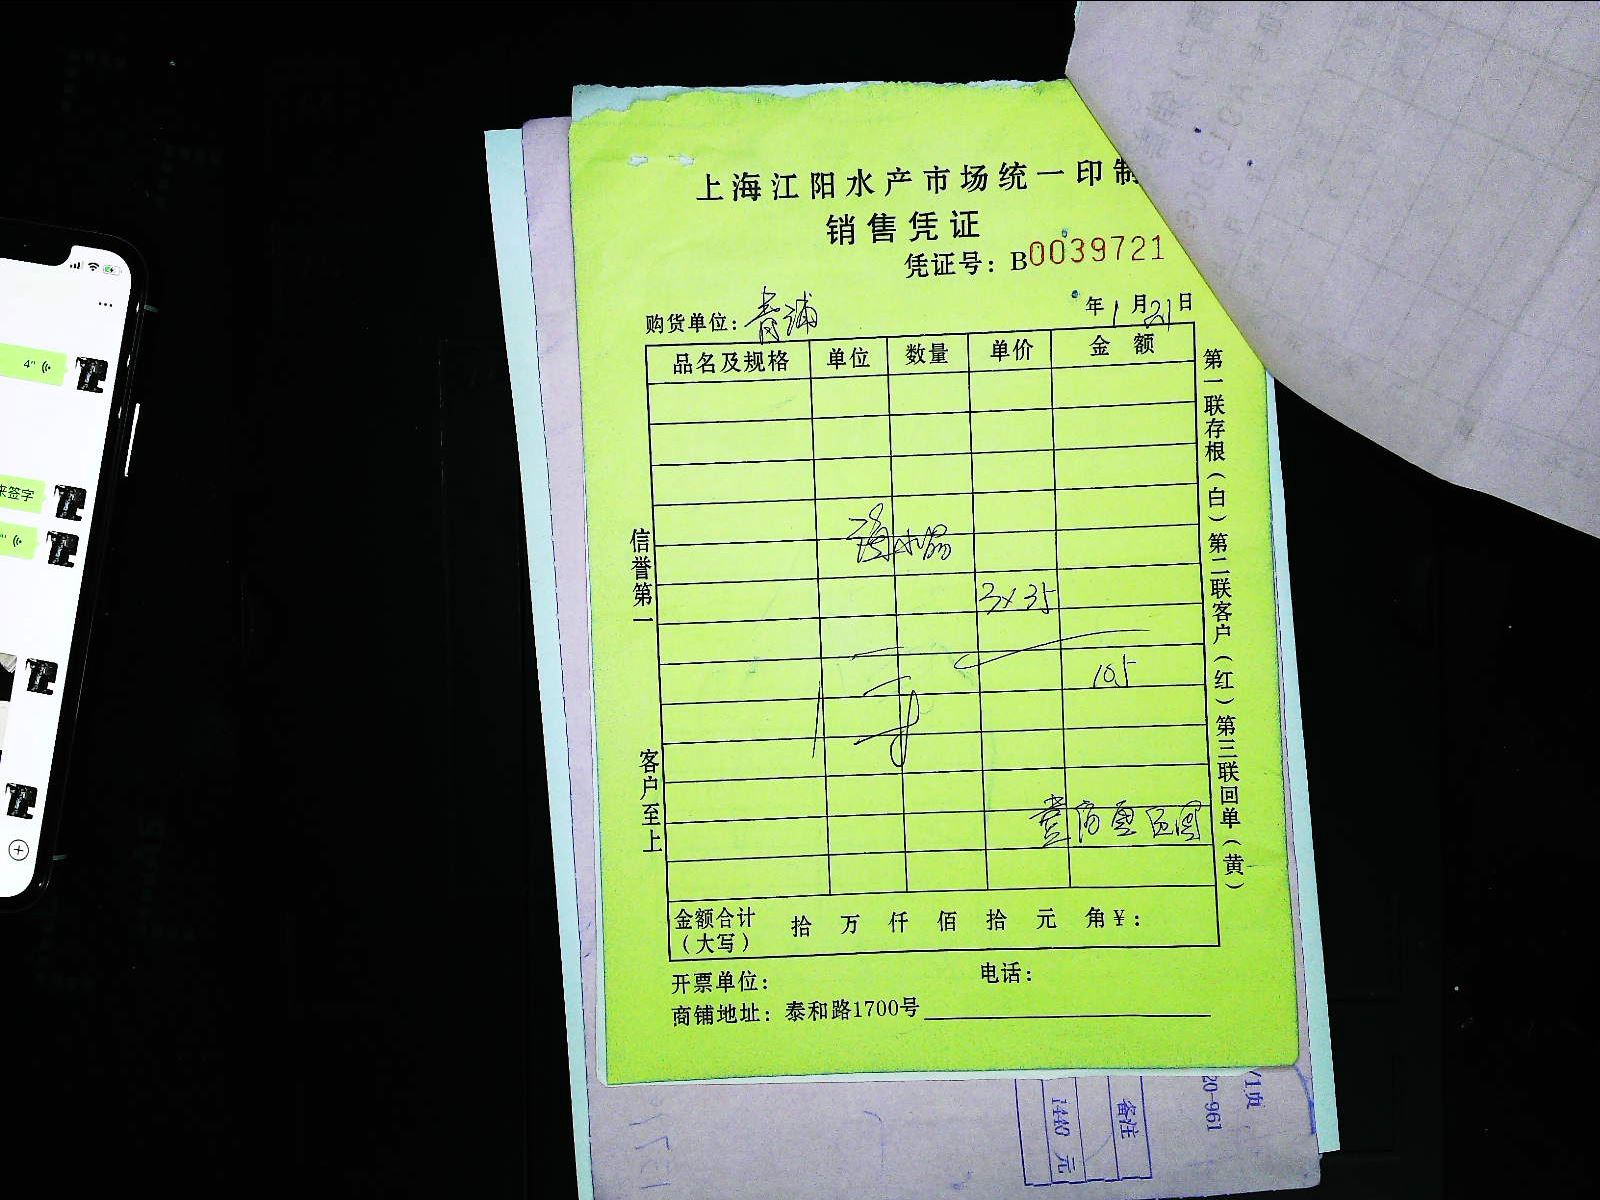 上海江阳水产市场统一印制
销售凭证
凭证号：B0039721
购货单位：青浦 年1月21日
品名及规格 单位 数量 单价 金额
3×35
105
信誉第一
客户至上
第一联存根（白）第二联客户（红）第三联回单（黄）
金额合计（大写） 拾 万 仟 佰 拾 元 角 ¥：
开票单位： 电话：
商铺地址：泰和路1700号
4"
来签字
备注
1440 元
20-961
/1页